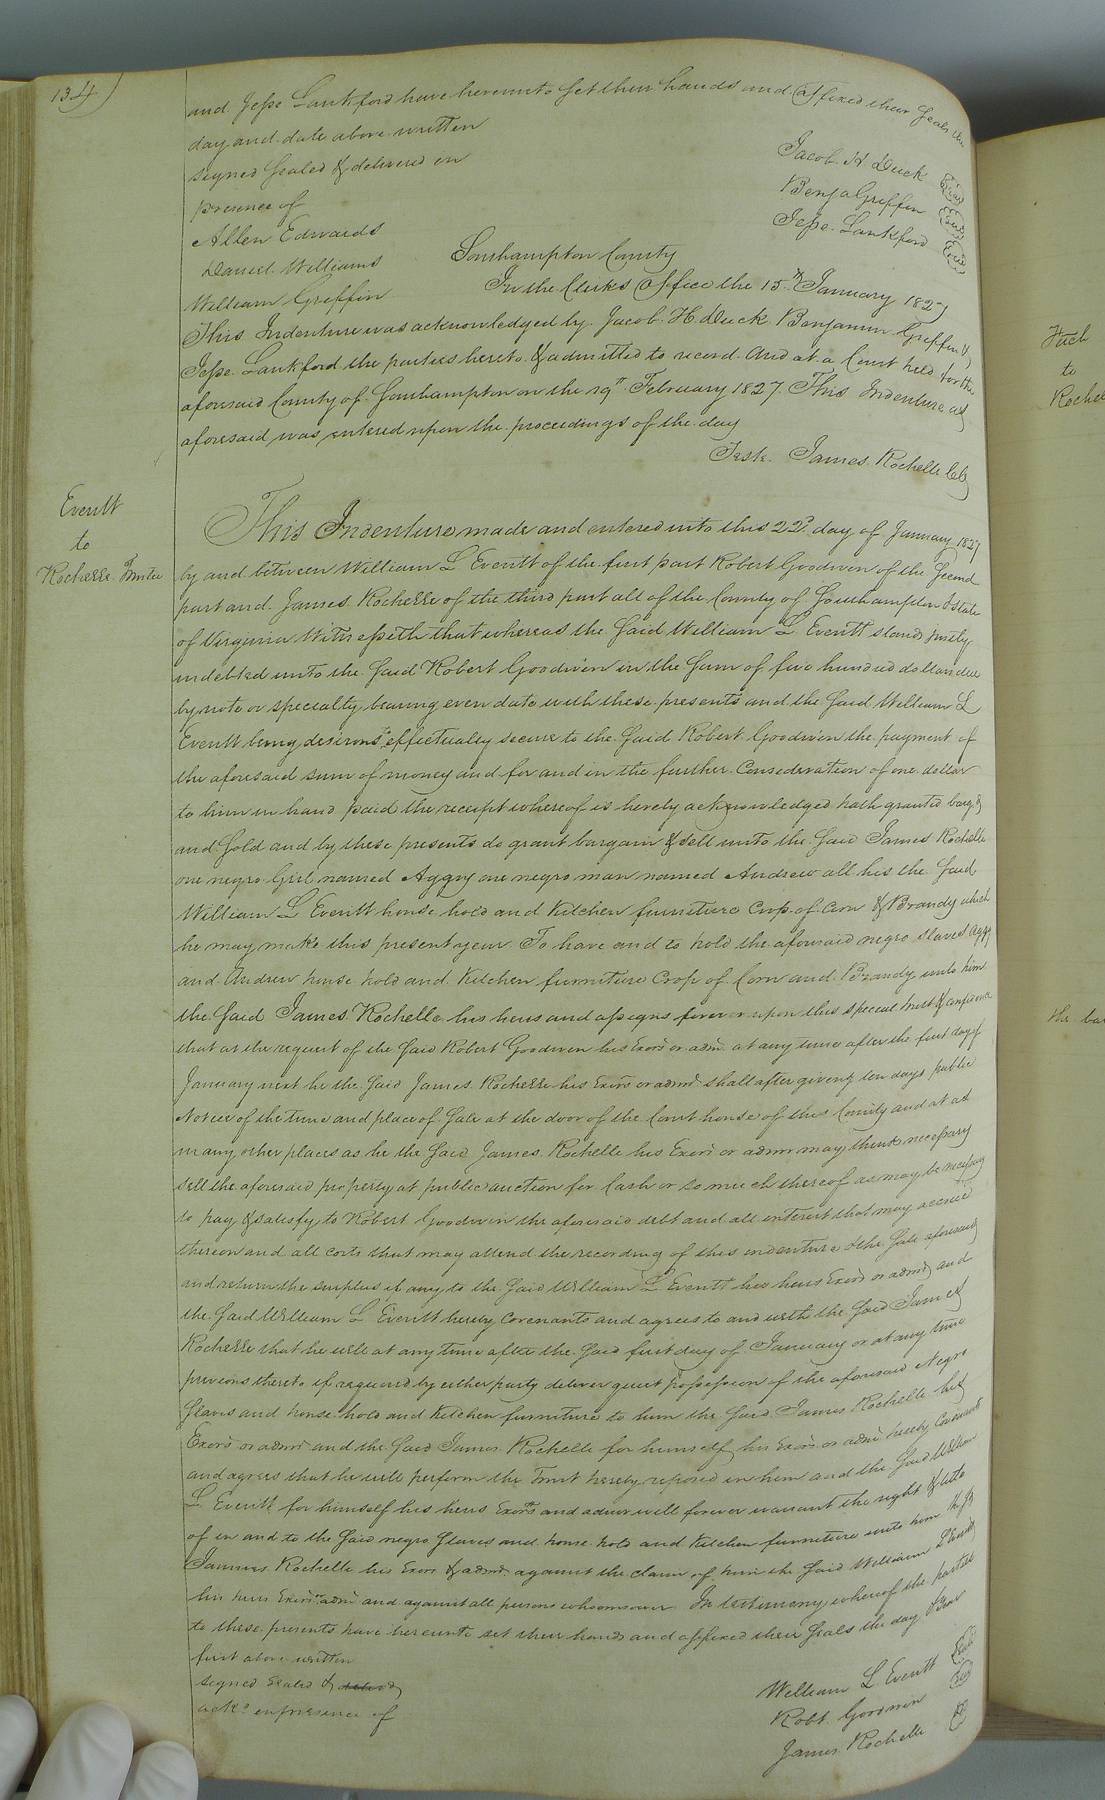 134)
and Jesse Lankford have hereunto set their hands and affixed their seals the
day and date above written
signed sealed & delivered in
presence of
Allen Edwards
Daniel Williams
William Griffin
Jacob H Duck Seal
Benja Griffin Seal
Jesse Lankford Seal
Southampton County
In the Clerks Office the 15th January 1827
This Indenture was acknowledged by Jacob H. Duck Benjamin Griffin &
Jesse Lankford the parties hereto & admitted to record. And at a Court held for the
aforesaid County of Southampton on the 19th February 1827. This Indenture as
aforesaid was entered upon the proceedings of the day
Teste. James Rochelle Clk
Everitt
to
Rochelle Trustee
This Indenture made and entered into this 22d day of January 1827
by and between William L Everitt of the first part Robert Goodwin of the second
part and James Rochelle of the third part all of the County of Southampton & state
of Virginia Witnesseth that whereas the said William L Everitt stands justly
indebted unto the said Robert Goodwin in the sum of five hundred dollars due
by note or specialty bearing even date with these presents and the said William L
Everitt being desirous to effectually secure to the said Robert Goodwin the payment of
the aforesaid sum of money and for and in the further Consideration of one dollar
to him in hand paid the receipt whereof is hereby acknowledged hath granted barg.d
and sold and by these presents do grant bargain & sell unto the said James Rochelle
one negro Girl named Aggy one negro man named Andrew all his the said
William L Everitt house hold and Kitchen furniture Crop of Corn & Brandy which
he may make this present year To have and to hold the aforesaid negro slaves Aggy
and Andrew house hold and Kitchen furniture Crop of Corn and Brandy unto him
the said James Rochelle his heirs and assigns forever upon this special trust & confidence
that at the request of the said Robert Goodwin his Exors or admr at any time after the first day of
January next he the said James Rochelle his Exors or admrs shall after giving ten days public
Notice of the time and place of sale at the door of the Court house of this County and at as
many other places as he the said James Rochelle his Exors or admrs may think necessary
sell the aforesaid property at public auction for Cash or so much thereof as may be necessary
to pay & satisfy to Robert Goodwin the aforesaid debt and all interest that may accrue
thereon and all costs that may attend the recording of this indenture & the sale aforesaid
and return the surplus if any to the said William L Everitt his heirs Exors or admrs and
the said William L Everitt hereby Covenants and agrees to and with the said James
Rochelle that he will at any time after the said first day of January or at any time
previous thereto if required by either party deliver quiet possession of the aforesaid Negro
slaves and house hold and Kitchen furniture to him the said James Rochelle his
Exors or admrs and the said James Rochelle for himself his Exors or admr hereby Covenants
and agrees that he will perform the Trust hereby reposed in him and the said William
L. Everitt for himself his heirs Exors and admrs will forever warrant the right & title
of in and to the said negro slaves and house hold and Kitchen furniture unto him the sd
James Rochelle his Exors & admrs against the claim of him the said William L Everitt
his heirs Exors or admr and against all persons whomsoever In testimony whereof the parties
to these presents have hereunto set their hands and affixed their seals the day & year
first above written
signed sealed &
ackd in presence of
William L Everitt Seal
Robt Goodwin Seal
James Rochelle
Fitch
to